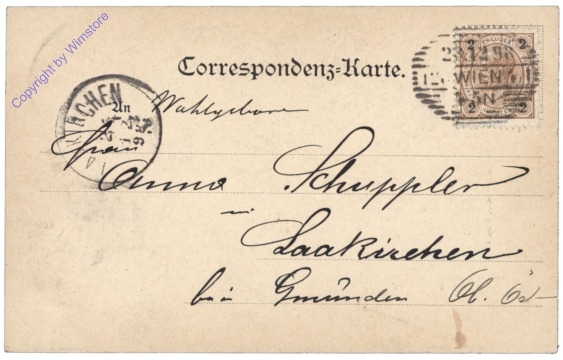 Copyright by Wimstore
Correspondenz-Karte.
2 2
WIEN
2 2
KIRCHEN
An Wohlgeboren
Frau
Anna Schuppler
in
Laakirchen
bei Gmünden Ob. Öst